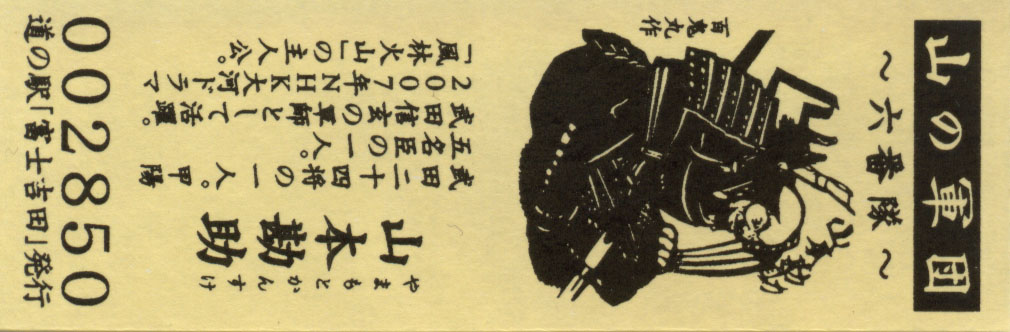 山の軍団
～六番隊～
百鬼丸作
山本勘助
やまもとかんすけ
山本勘助
武田二十四将の一人。甲陽
五名臣の一人。
武田信玄の軍師として活躍。
2007年NHK大河ドラマ
「風林火山」の主人公。
002850
道の駅「富士吉田」発行